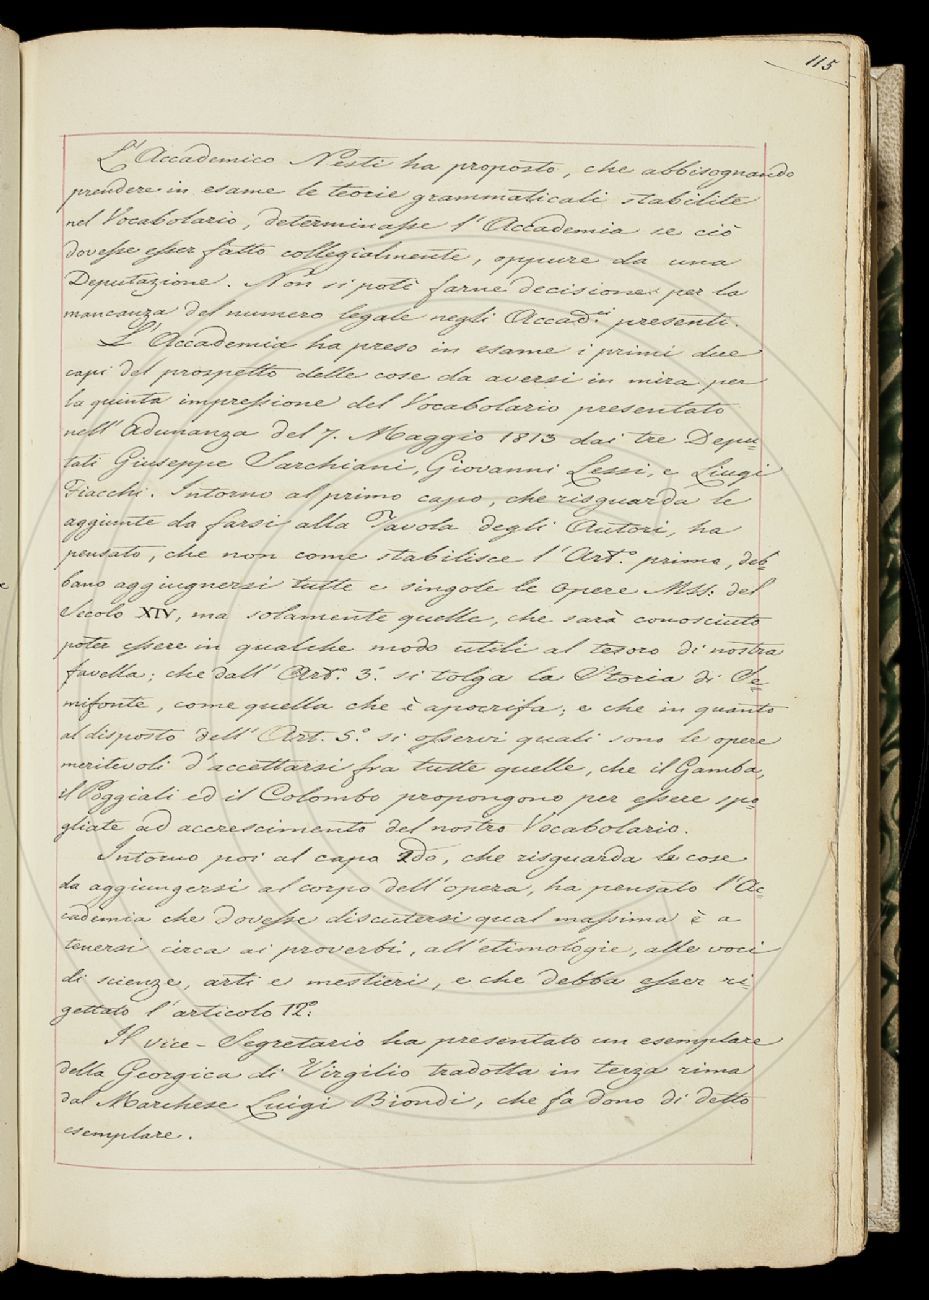 115
L'Accademico Nesti ha proposto, che abbisognando
prendere in esame le teorie grammaticali stabilite
nel Vocabolario, determinasse l'Accademia se ciò
dovesse esser fatto collegialmente, oppure da una
Deputazione. Non si potè farne decisione per la
mancanza del numero legale negli Accad.ci presenti.
L'Accademia ha preso in esame i primi due
capi del prospetto delle cose da aversi in mira per
la quinta impressione del Vocabolario presentato
nell'Adunanza del 7. Maggio 1813 dai tre Depu=
tati Giuseppe Sarchiani, Giovanni Lessi, e Liugi
Fiacchi. Intorno al primo capo, che risguarda le
aggiunte da farsi alla Tavola degli Autori, ha
pensato, che non come stabilisce l'Art.o primo, deb=
bano aggiugnersi tutte e singole le opere Mss. del
Secolo XIV, ma solamente quelle, che sarà conosciuto
poter essere in qualche modo utili al tesoro di nostra
favella; che dall'Art.o 3.o si tolga la Storia di Se=
mifonte, come quella che è apocrifa; e che in quanto
al disposto dell'Art. 5.o si osservi quali sono le opere
meritevoli d'accettarsi fra tutte quelle, che il Gamba,
il Poggiali ed il Colombo propongono per essere spo=
gliate ad accrescimento del nostro Vocabolario.
Intorno poi al capo 2do, che risguarda le cose
da aggiungersi al corpo dell'opera, ha pensato l'Ac=
cademia che dovesse discutersi qual massima è a
tenersi circa ai proverbi, all'etimologie, alle voci
di scienze, arti e mestieri, e che debba esser ri=
gettato l'articolo 12.o
Il vice-Segretario ha presentato un esemplare
della Georgica di Virgilio tradotta in terza rima
dal Marchese Luigi Biondi, che fa dono di detto
esemplare.